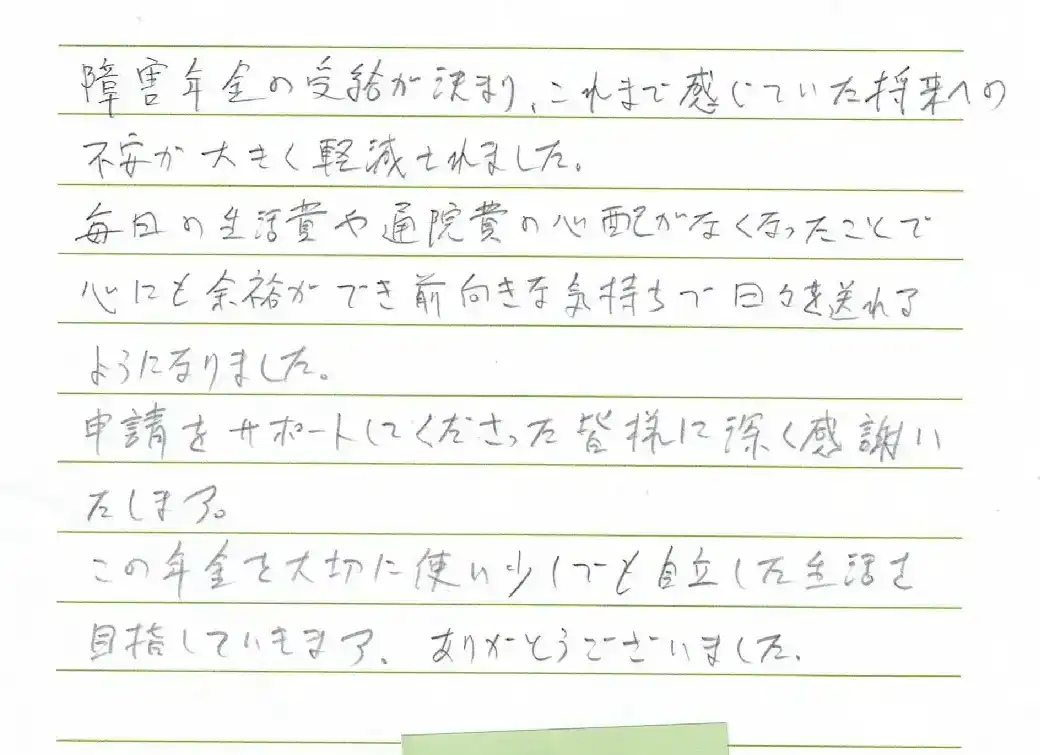 障害年金の受給が決まり、これまで感じていた将来への
不安が大きく軽減されました。
毎日の生活費や通院費の心配がなくなったことで
心にも余裕ができ前向きな気持ちで日々を送れる
ようになりました。
申請をサポートしてくださった皆様に深く感謝い
たします。
この年金を大切に使い少しでも自立した生活を
目指していきます。ありがとうございました。